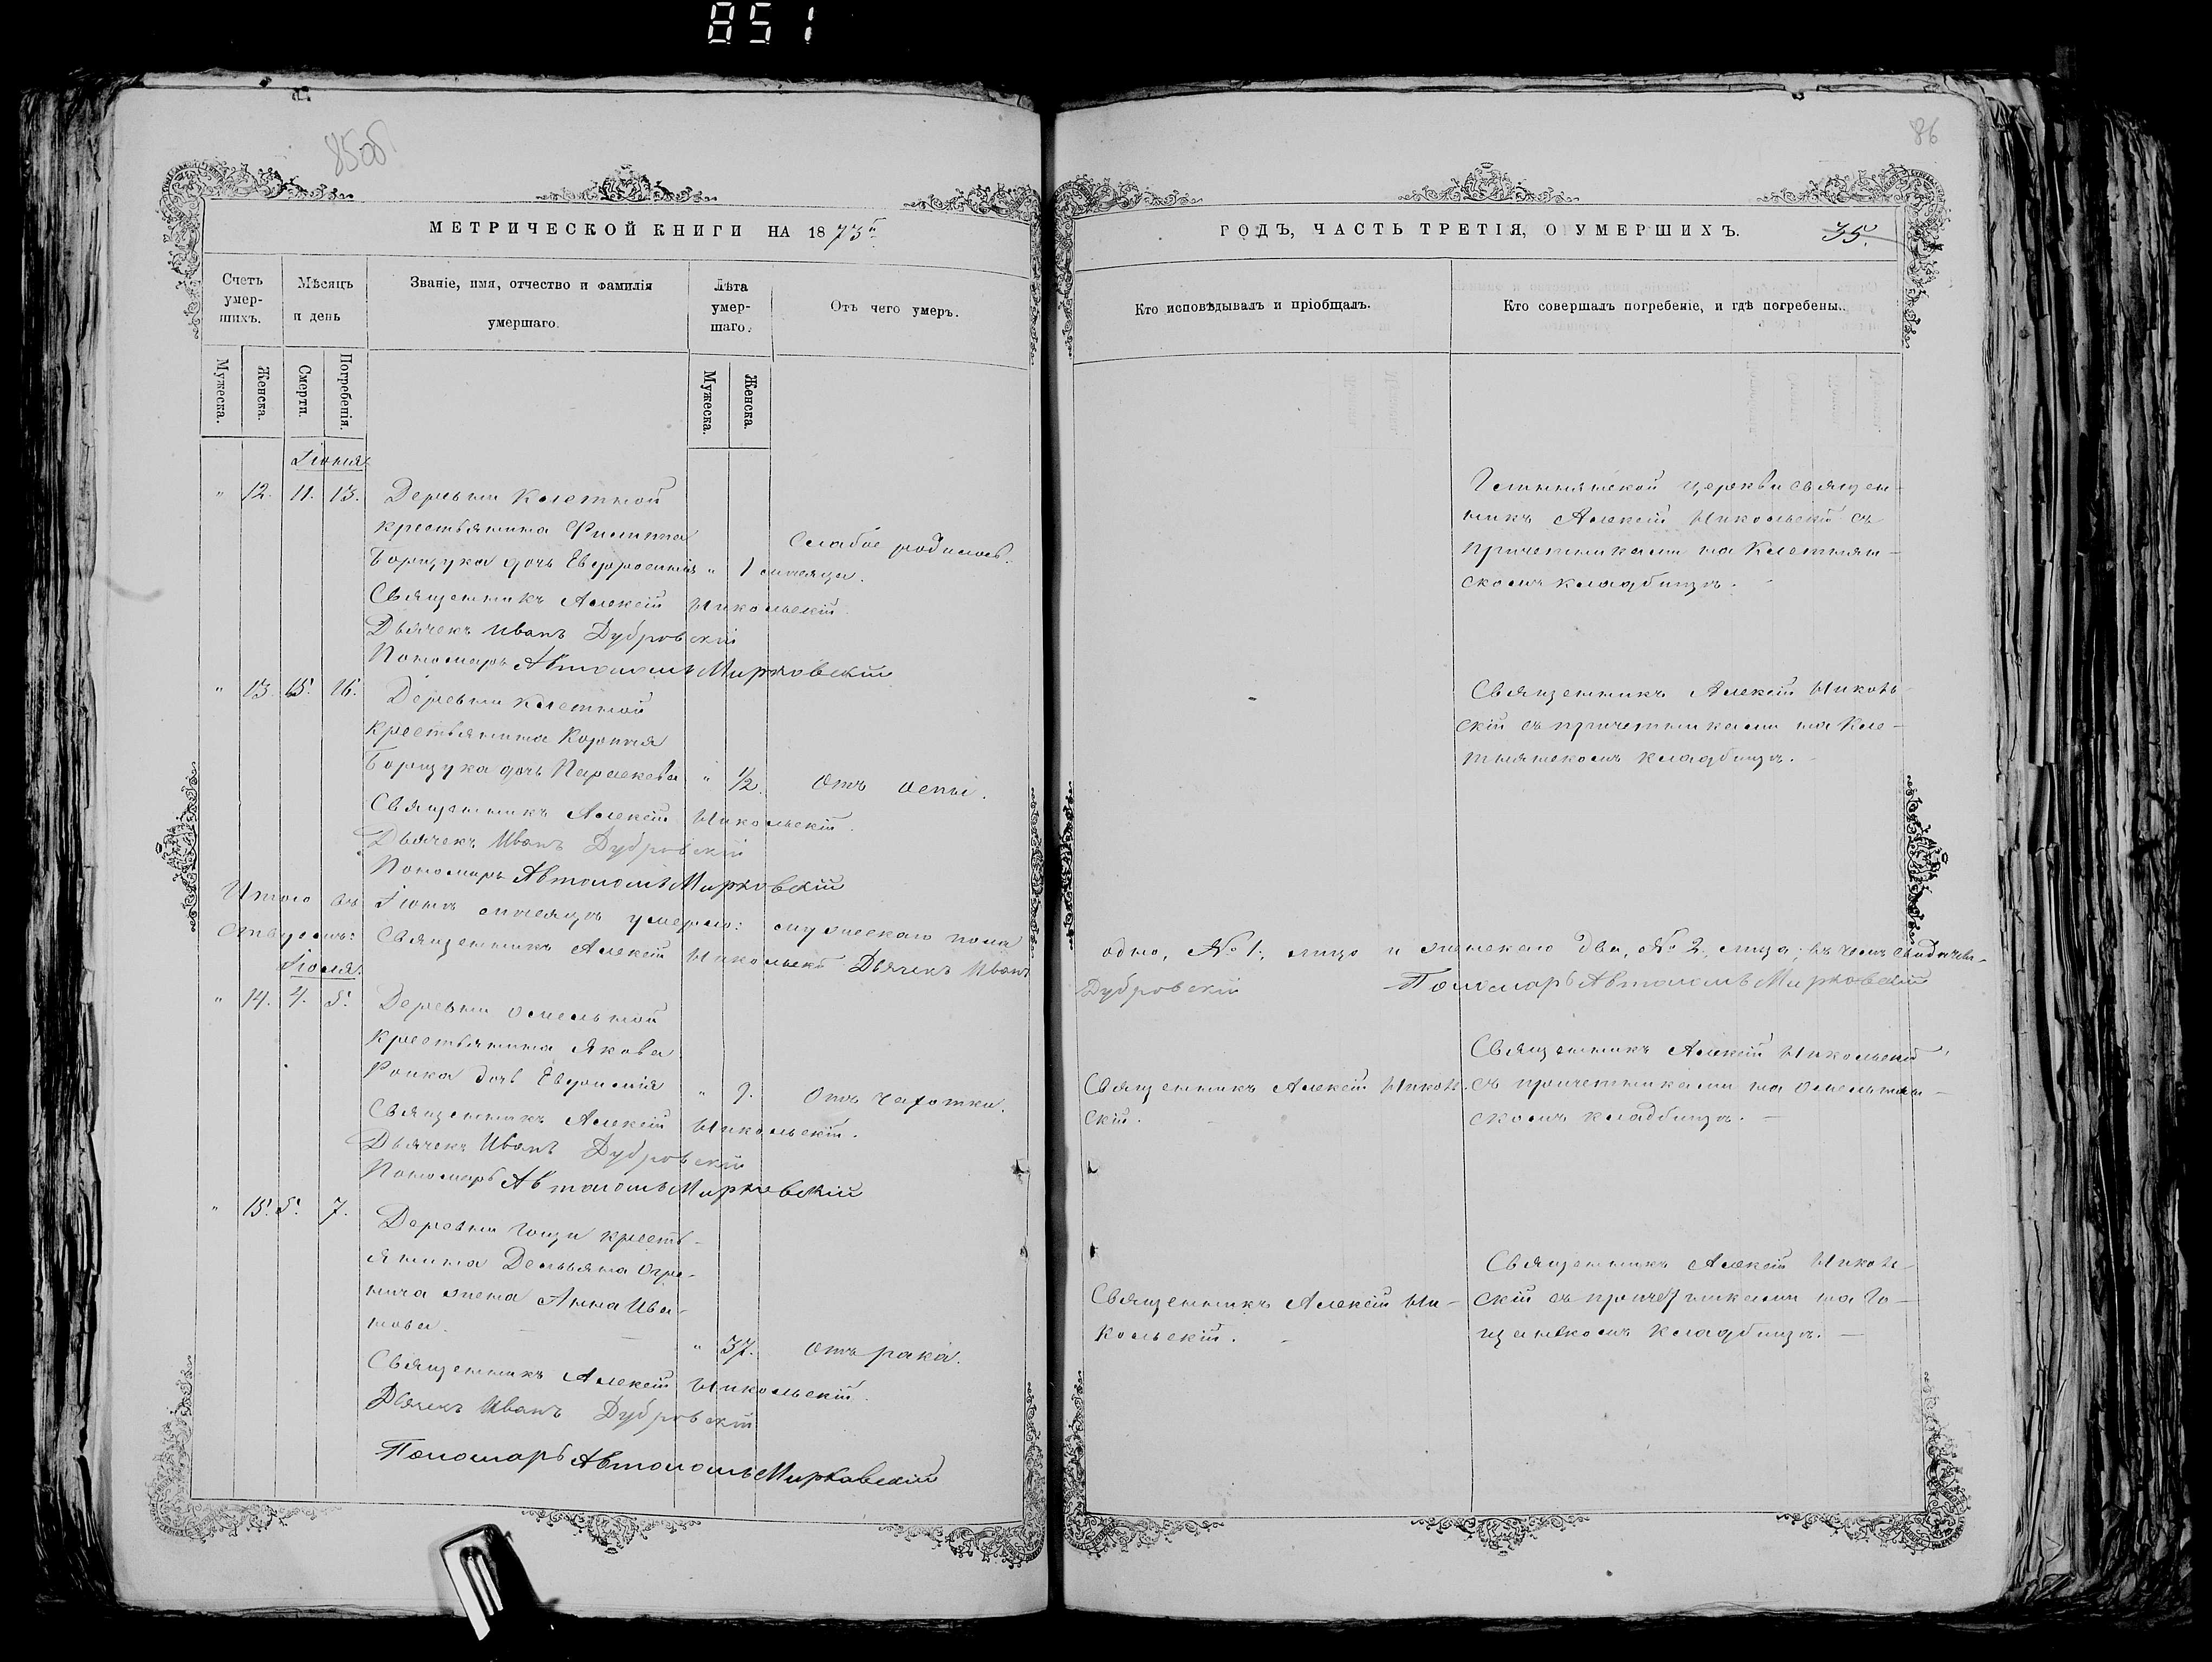 851
85об
МЕТРИЧЕСКОЙ КНИГИ НА 1873й
Счетъ умер-шихъ.
Мѣсяцъ и день
Званіе, имя, отчество и фамилія умершаго.
Лѣта умер-шаго.
Отъ чего умеръ.
Мужеска.
Женска.
Смерти.
Погребенія.
Мужеска.
Женска.
Іюня
" 12. 11. 13. Деревни Клетной
крестьянина Филиппа
Слабое родилось.
Борщука дочь Евфросинія " 1 мѣсяца.
Священникъ Алексій Никольскій.
Дьячекъ Иванъ Дубровскій
Пономарь Автономъ Мирковскій
" 13. 15. 16. Деревни Клетной
крестьянина Корнилія
Борщука дочь Параскева " 1/2. Отъ оспы.
Священникъ Алексій Никольскій.
Дьячекъ Иванъ Дубровскій
Пономарь Автономъ Мирковскій
Итого въ Іюнѣ мѣсяцѣ умерло: мужескаго пола
ствуемъ: Священникъ Алексій Никольскій Дьячекъ Иванъ
Іюля.
" 14. 4. 5. Деревни Омельной
крестьянина Якова
Ропка дочь Евфимія " 9. Отъ чахотки.
Священникъ Алексій Никольскій.
Дьячекъ Иванъ Дубровскій
Пономарь Автономъ Мирковскій
" 15. 5. 7. Деревни Гощи кресть-
янина Демьяна
жена Анна Ива-
нова. " 37. Отъ рака.
Священникъ Алексій Никольскій.
Дьячекъ Иванъ Дубровскій
Пономарь Автономъ Мирковскій
86
ГОДЪ, ЧАСТЬ ТРЕТІЯ, О УМЕРШИХЪ. 35.
Кто исповѣдывалъ и пріобщалъ.
Кто совершалъ погребеніе, и гдѣ погребены.
церкви священ-
никъ Алексій Никольскій съ
причетниками на Клетнян-
скомъ кладбищѣ.
Священникъ Алексій Николь-
скій съ причетниками на Кле-
тнянскомъ кладбищѣ.
одно, № 1., лицо и женскаго два, № 2, лица; въ чемъ свидѣтель-
Дубровскій Пономарь Автономъ Мирковскій
Священникъ Алексій Николь-
скій.
Священникъ Алексій Никольскій
съ причетниками на Омельнян-
скомъ кладбищѣ. —
Священникъ Алексій Ни-
кольскій.
Священникъ Алексій Николь-
скій съ причетниками на Го-
щанскомъ кладбищѣ. —